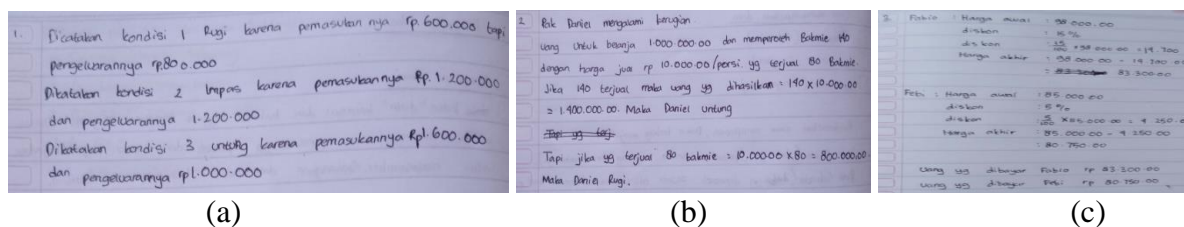 1. Dikatakan kondisi 1 Rugi karena pemasukan nya rp.600.000 tapi
pengeluarannya rp.800.000
Dikatakan kondisi 2 Impas karena pemasukannya Rp.1.200.000
dan pengeluarannya 1.200.000
Dikatakan kondisi 3 untung karena pemasukannya Rp1.600.000
dan pengeluarannya rp1.000.000
(a)
2. Pak Daniel mengalami kerugian
Uang untuk belanja 1.000.000.00 dan memperoleh Bakmie 140
dengan harga jual rp 10.000.00/porsi. yg terjual 80 Bakmie.
Jika 140 terjual maka uang yg dihasilkan = 140 x 10.000.00
= 1.400.000.00. Maka Daniel untung
Tapi yg
Tapi jika yg terjual 80 bakmie = 10.000.00 x 80 = 800.000.00.
Maka Daniel Rugi.
(b)
3. Fabio : Harga awal : 98 000.00
diskon : 15 %
diskon : 15/100 x 98 000 00 = 14.700
Harga akhir : 98 000 00 - 14 700 00
= 83 300.00
Febi : Harga awal : 85 000 00
diskon : 5 %
diskon : 5/100 x 85 000 00 = 4 250.0
Harga akhir : 85 000 00 - 4 250 00
: 80 750.00
Uang yg dibayar Fabio rp 83 300 00
Uang yg dibayar Febi rp 80 750 00
(c)